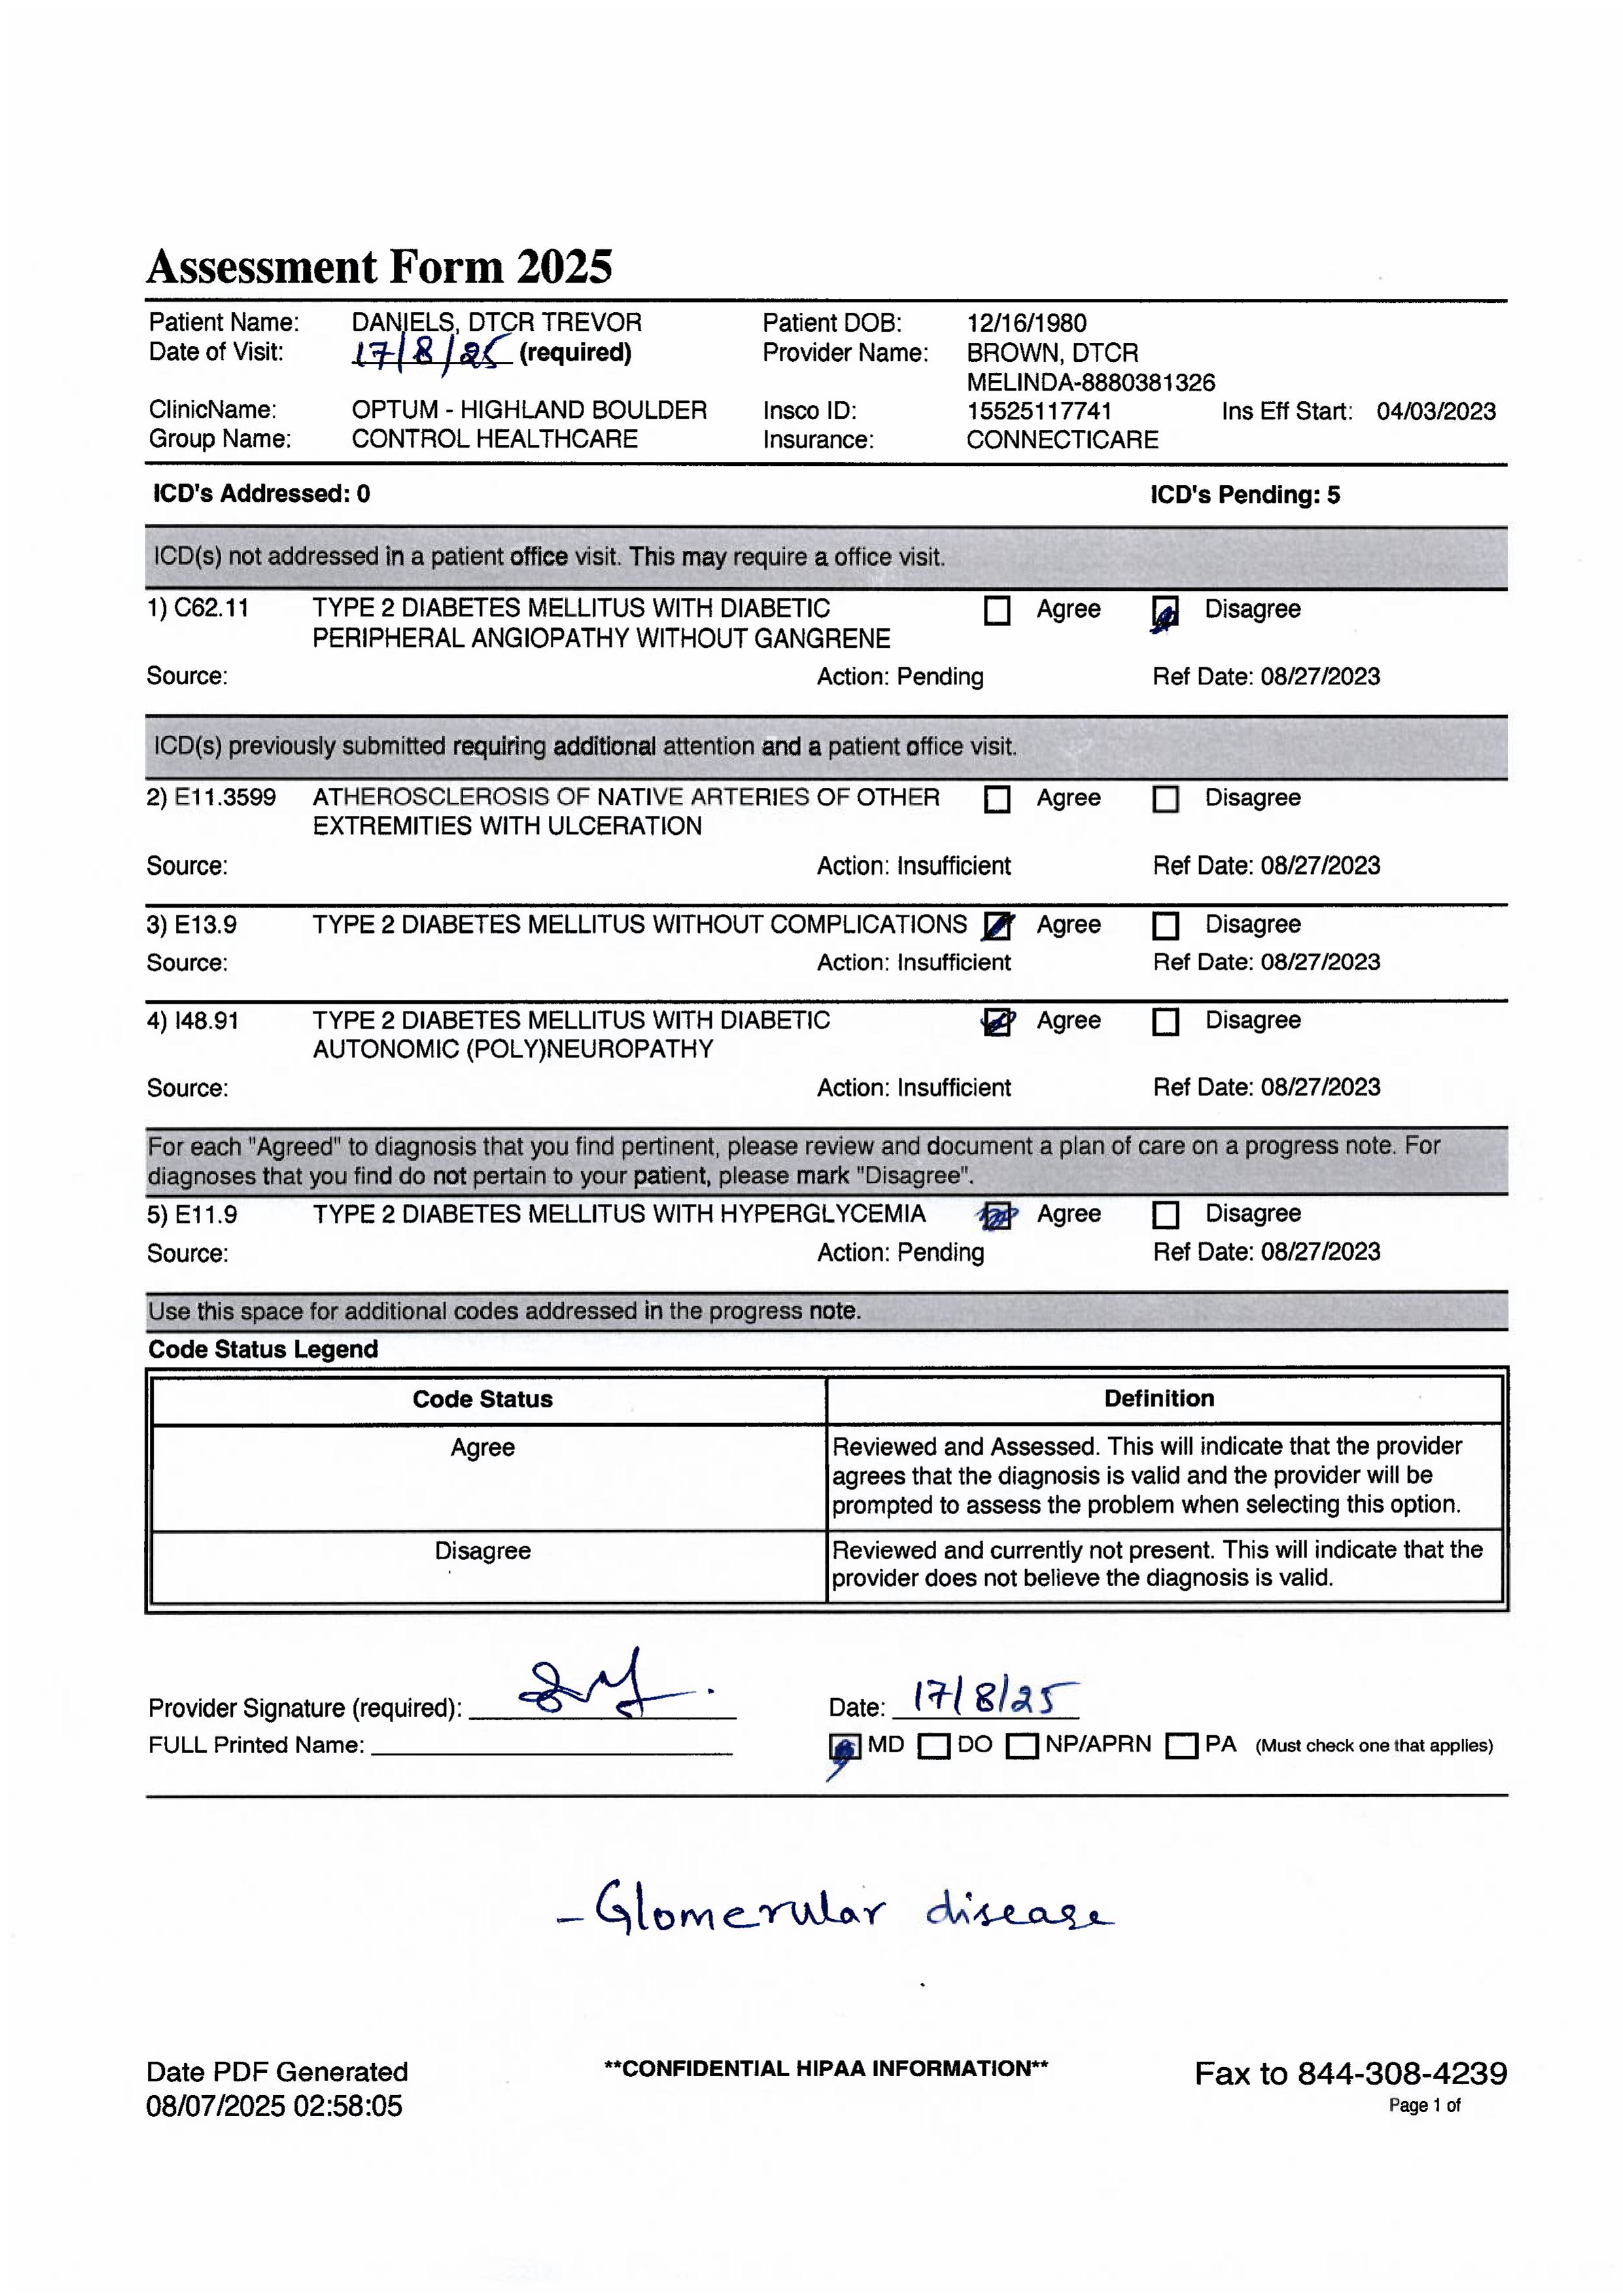 Assessment Form 2025
Patient Name: DANIELS, DTCR TREVOR Patient DOB: 12/16/1980
Date of Visit: 17/8/25 (required) Provider Name: BROWN, DTCR
MELINDA-8880381326
ClinicName: OPTUM - HIGHLAND BOULDER Insco ID: 15525117741 Ins Eff Start: 04/03/2023
Group Name: CONTROL HEALTHCARE Insurance: CONNECTICARE
ICD's Addressed: 0 ICD's Pending: 5
ICD(s) not addressed in a patient office visit. This may require a office visit.
1) C62.11 TYPE 2 DIABETES MELLITUS WITH DIABETIC Agree Disagree
PERIPHERAL ANGIOPATHY WITHOUT GANGRENE
Source: Action: Pending Ref Date: 08/27/2023
ICD(s) previously submitted requiring additional attention and a patient office visit.
2) E11.3599 ATHEROSCLEROSIS OF NATIVE ARTERIES OF OTHER Agree Disagree
EXTREMITIES WITH ULCERATION
Source: Action: Insufficient Ref Date: 08/27/2023
3) E13.9 TYPE 2 DIABETES MELLITUS WITHOUT COMPLICATIONS Agree Disagree
Source: Action: Insufficient Ref Date: 08/27/2023
4) I48.91 TYPE 2 DIABETES MELLITUS WITH DIABETIC Agree Disagree
AUTONOMIC (POLY)NEUROPATHY
Source: Action: Insufficient Ref Date: 08/27/2023
For each "Agreed" to diagnosis that you find pertinent, please review and document a plan of care on a progress note. For
diagnoses that you find do not pertain to your patient, please mark "Disagree".
5) E11.9 TYPE 2 DIABETES MELLITUS WITH HYPERGLYCEMIA Agree Disagree
Source: Action: Pending Ref Date: 08/27/2023
Use this space for additional codes addressed in the progress note.
Code Status Legend
Code Status Definition
Agree Reviewed and Assessed. This will indicate that the provider
agrees that the diagnosis is valid and the provider will be
prompted to assess the problem when selecting this option.
Disagree Reviewed and currently not present. This will indicate that the
provider does not believe the diagnosis is valid.
Provider Signature (required): Date: 17/8/25
FULL Printed Name: MD DO NP/APRN PA (Must check one that applies)
- Glomerular disease
Date PDF Generated **CONFIDENTIAL HIPAA INFORMATION** Fax to 844-308-4239
08/07/2025 02:58:05 Page 1 of